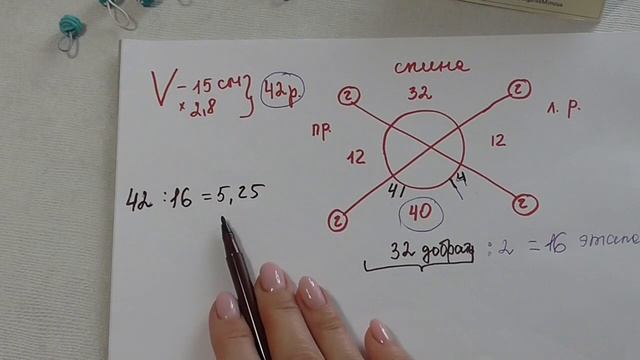 спина
V - 15 см } 42 р.
× 2,8
2 32 2
пр. 12 12 л. р.
42 : 16 = 5,25
4 4
2 40 2
32 добрать : 2 = 16 этапа